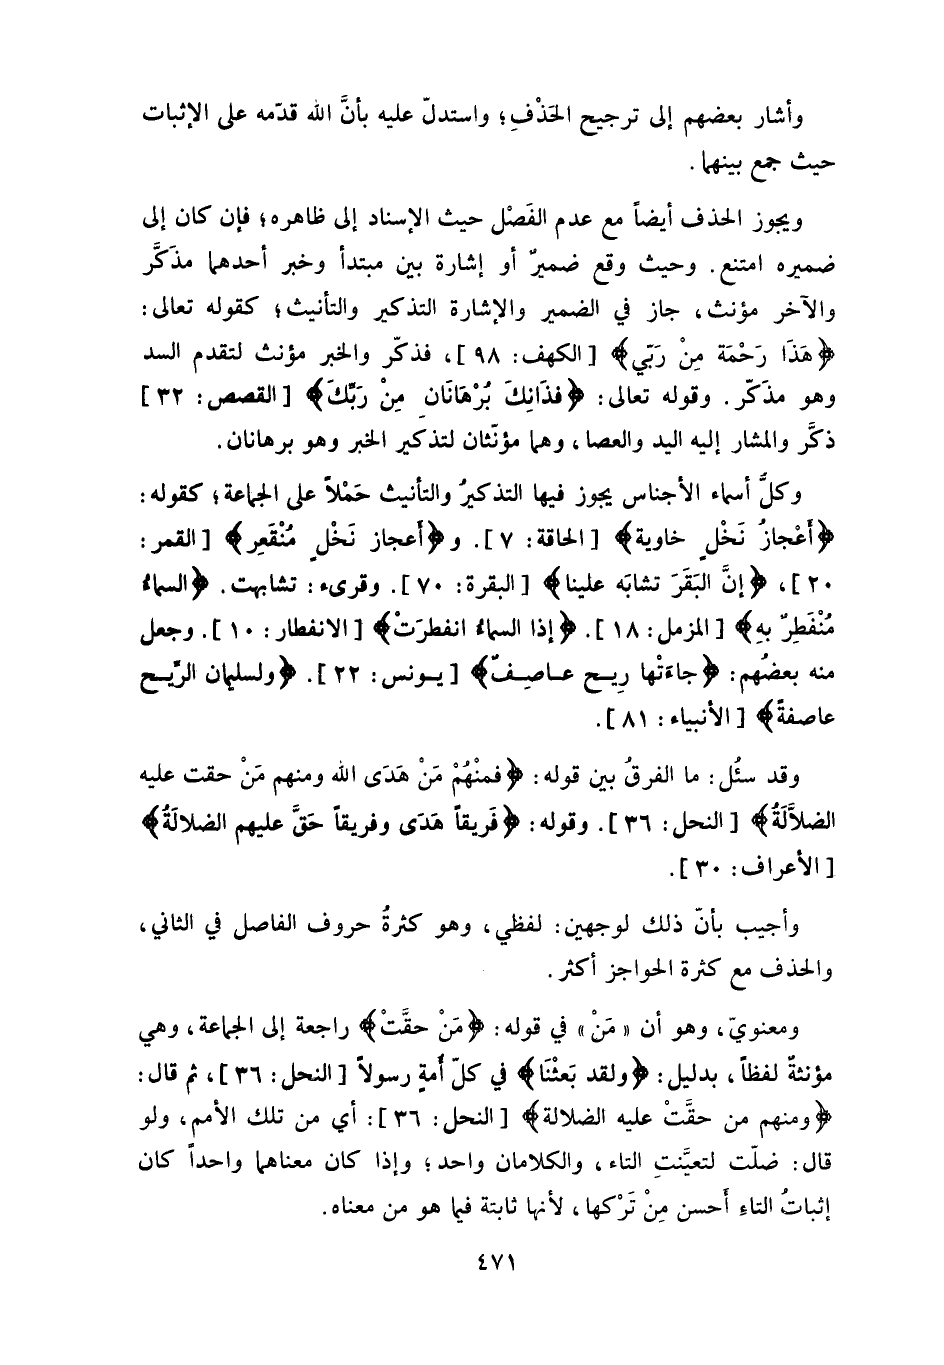 وأشار بعضهم إلى ترجيح الحَذْفِ؛ واستدلّ عليه بأنَّ الله قدّمه على الإثبات
حيث جمع بينهما.
ويجوز الحذف أيضاً مع عدم الفَصْل حيث الإسناد إلى ظاهره؛ فإن كان إلى
ضميره امتنع. وحيث وقع ضميرٌ أو إشارة بين مبتدأ وخبر أحدهما مذكَّر
والآخر مؤنث، جاز في الضمير والإشارة التذكير والتأنيث؛ كقوله تعالى:
﴿هَذَا رَحْمَة مِنْ رَبّي﴾ [الكهف: ٩٨]، فذكّر والخبر مؤنث لتقدم السد
وهو مذكّر. وقوله تعالى: ﴿فذَانِكَ بُرْهَانَانِ مِنْ رَبِّكَ﴾ [القصص: ٣٢]
ذكَّر والمشار إليه اليد والعصا، وهما مؤنّثان لتذكير الخبر وهو برهانان.
وكلُّ أسماء الأجناس يجوز فيها التذكيرُ والتأنيث حَمْلاً على الجماعة؛ كقوله:
﴿أَعْجازُ نَخْلٍ خاوية﴾ [الحاقة: ٧]. و﴿أَعجاز نَخْلٍ مُنْقَعِر﴾ [القمر:
٢٠]، ﴿إنَّ البَقَرَ تشابَه علينا﴾ [البقرة: ٧٠]. وقرىء: تشابهت. ﴿السماءُ
مُنْفَطِرٌ بهِ﴾ [المزمل: ١٨]. ﴿إذا السماءُ انفطرَتْ﴾ [الانفطار: ١٠]. وجعل
منه بعضُهم: ﴿جاءَتْها رِيـح عـاصِـفٌ﴾ [يـونس: ٢٢]. ﴿ولسليمان الرِّيـح
عاصفةً﴾ [الأنبياء: ٨١].
وقد سئُل: ما الفرقُ بين قوله: ﴿فمنْهُمْ مَنْ هَدَى الله ومنهم مَنْ حقت عليه
الضلاَّلَةُ﴾ [النحل: ٣٦]. وقوله: ﴿فَريقاً هَدَى وفريقاً حَقَّ عليهم الضلالَةُ﴾
[الأعراف: ٣٠].
وأجيب بأنّ ذلك لوجهين: لفظي، وهو كثرةُ حروف الفاصل في الثاني،
والحذف مع كثرة الحواجز أكثر.
ومعنويّ، وهو أن «مَنْ» في قوله: ﴿مَنْ حقَّتْ﴾ راجعة إلى الجماعة، وهي
مؤنثةٌ لفظاً، بدليل: ﴿ولقد بَعثْنَا﴾ في كلّ أمةٍ رسولاً [النحل: ٣٦]، ثم قال:
﴿ومنهم من حقَّتْ عليه الضلالة﴾ [النحل: ٣٦]: أي من تلك الأمم، ولو
قال: ضلّت لتعيَّنتِ التاء، والكلامان واحد؛ وإذا كان معناهما واحداً كان
إثباتُ التاءِ أَحسن مِنْ تَرْكها، لأنها ثابتة فيما هو من معناه.
٤٧١